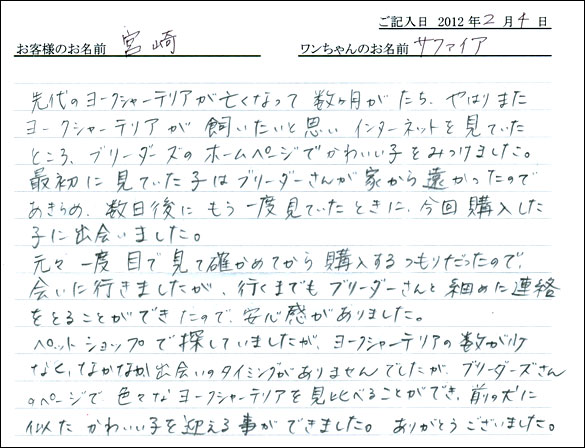 ご記入日 2012 年 2 月 4 日
お客様のお名前 宮崎 ワンちゃんのお名前 サファイア
先代のヨークシャーテリアが亡くなって 数ヶ月がたち、やはりまた
ヨークシャーテリアが 飼いたいと思い インターネットを見ていた
ところ、ブリーダーズのホームページでかわいい子をみつけました。
最初に見ていた子はブリーダーさんが家から遠かったので
あきらめ、数日後にもう一度見ていたときに、今回購入した
子に出会いました。
元々一度目で見て確かめてから購入するつもりだったので、
会いに行きましたが、行くまでもブリーダーさんと細めた連絡
をとることができたので、安心感がありました。
ペットショップで探していましたが、ヨークシャーテリアの数が少
なく、なかなか出会いのタイミングがありませんでしたが、ブリーダーズさん
のページで色々なヨークシャーテリアを見比べることができ、前の犬に
似たかわいい子を迎える事ができました。ありがとうございました。